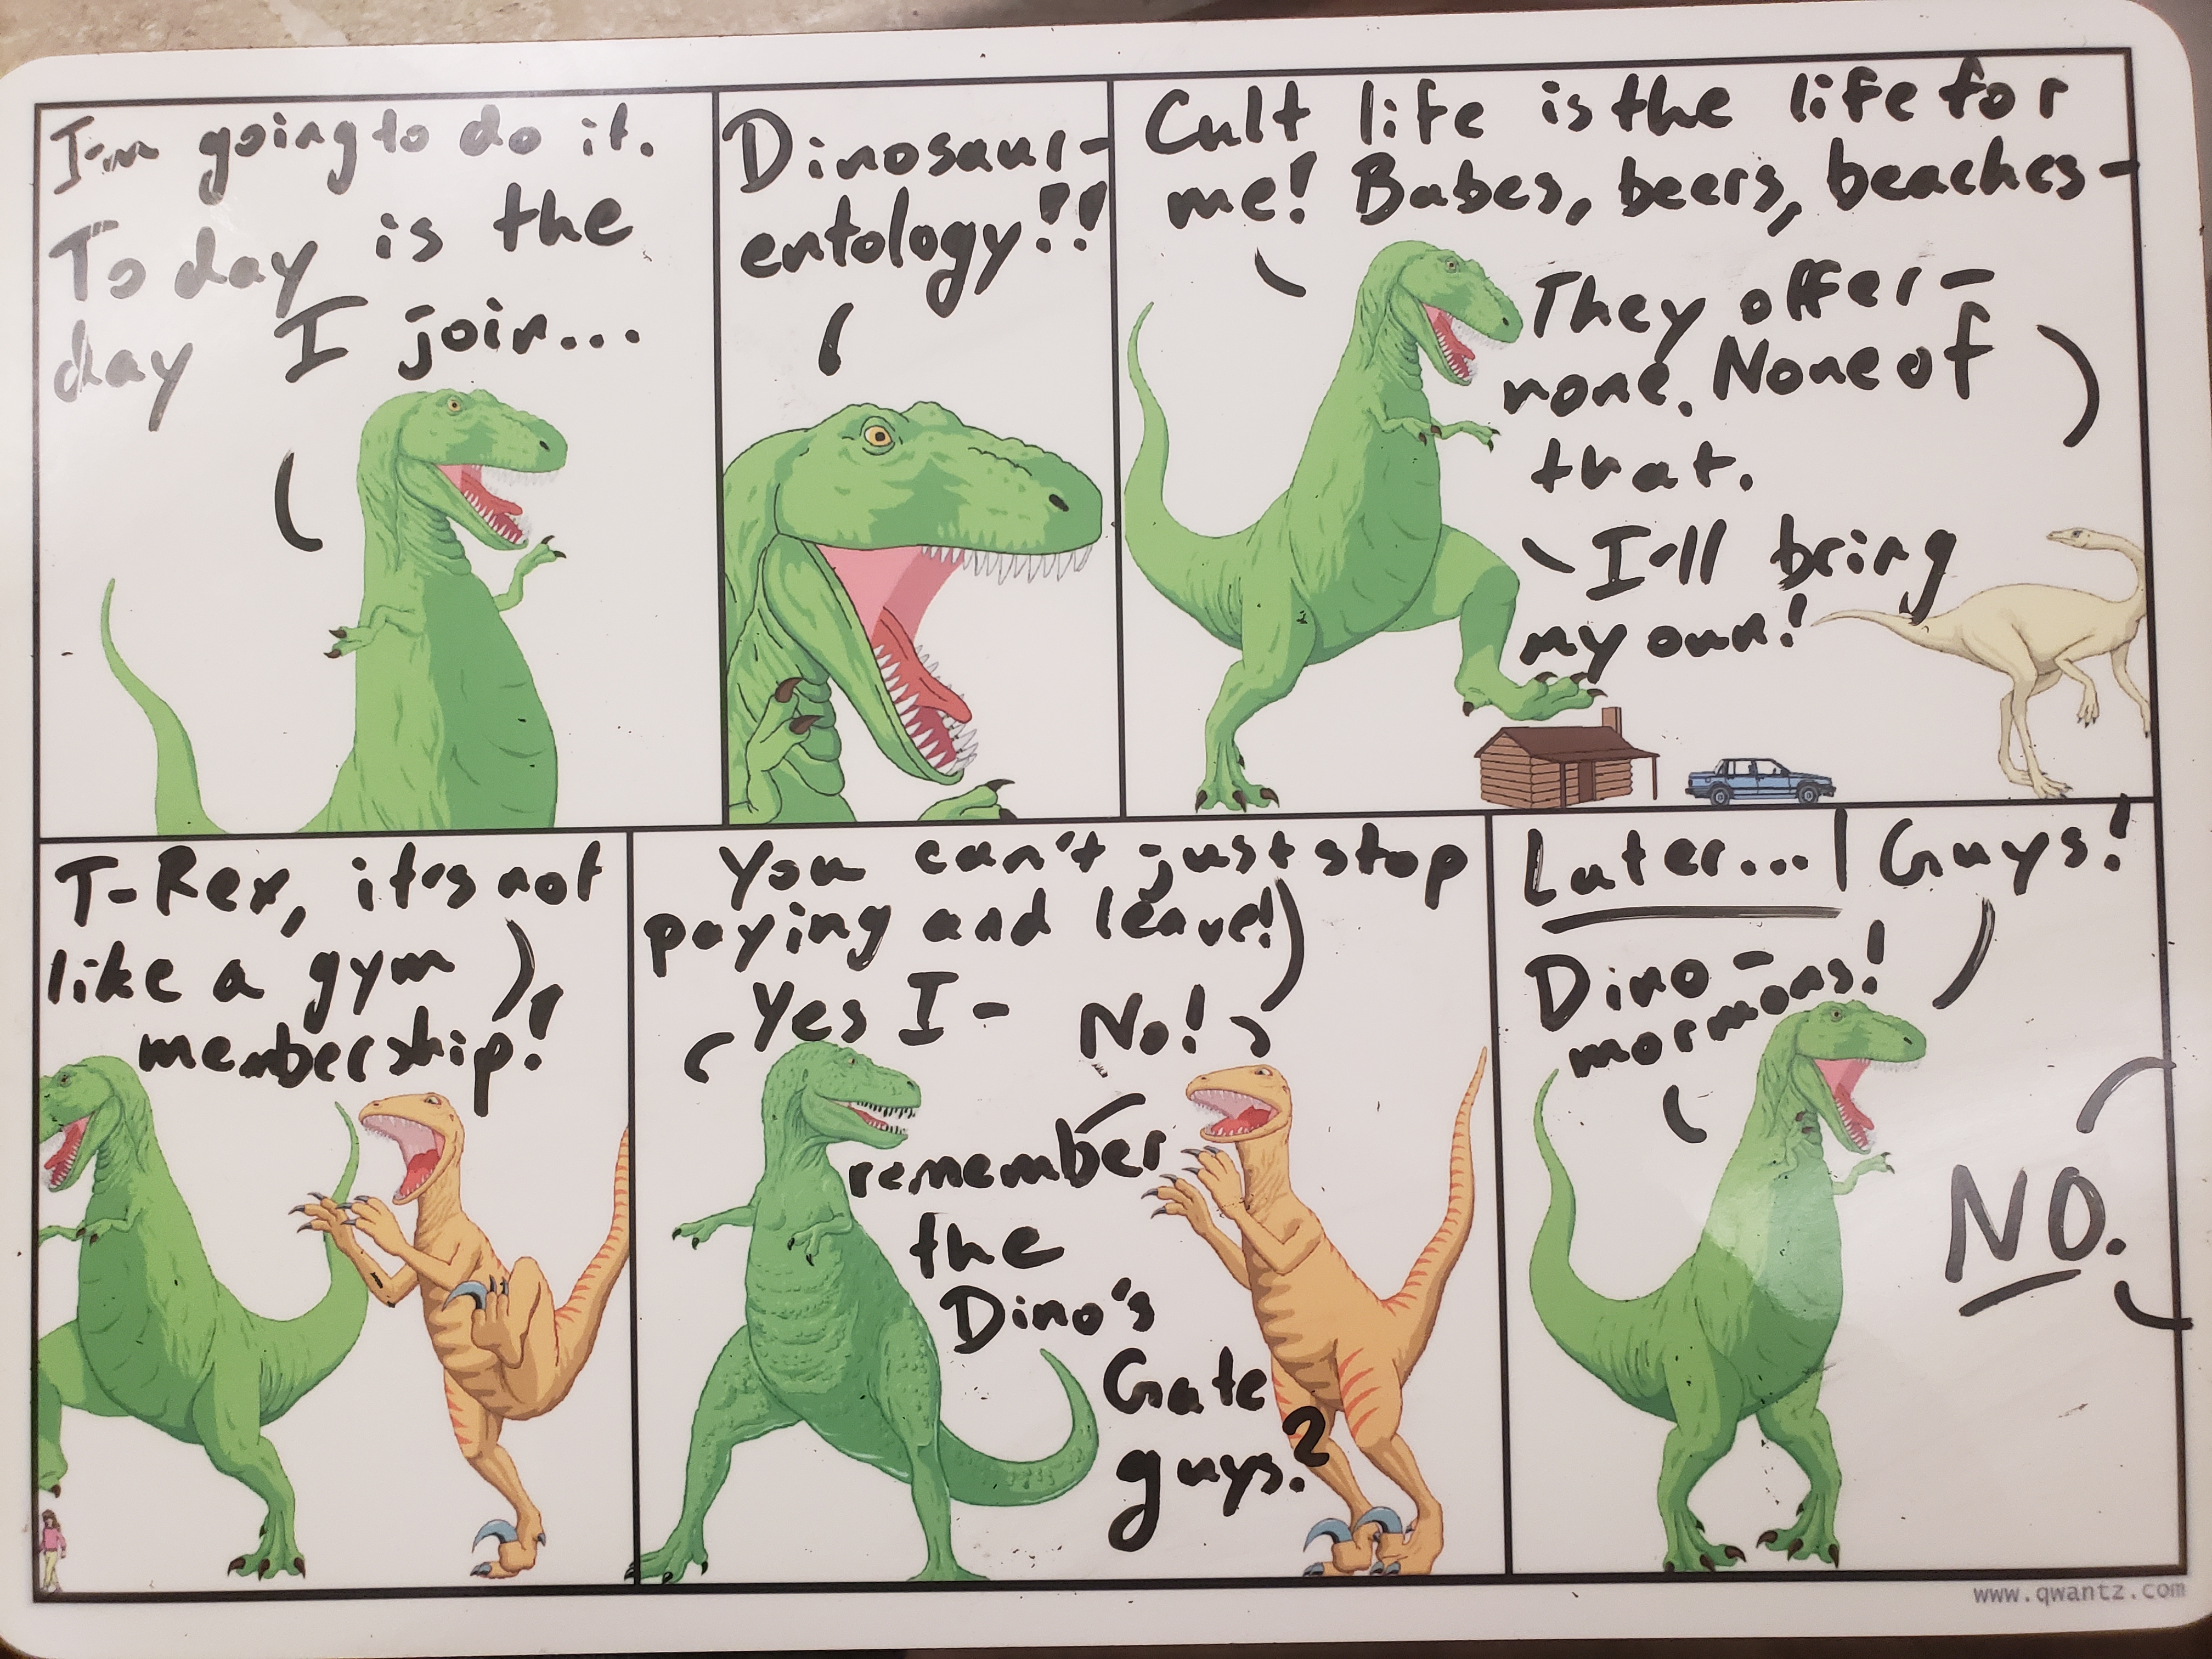 I'm going to do it.
Today is the
day I join...
Dinosaur-
entology!!
Cult life is the life for
me! Babes, beers, beaches-
They offer-
none. None of
that.
I'll bring
my own!
T-Rex, it's not
like a gym
membership!
You can't just stop
paying and leave!
Yes I-
No!
remember
the
Dino's
Gate
guys?
Later...
Guys!
Dino-
mormons!
NO.
www.qwantz.com